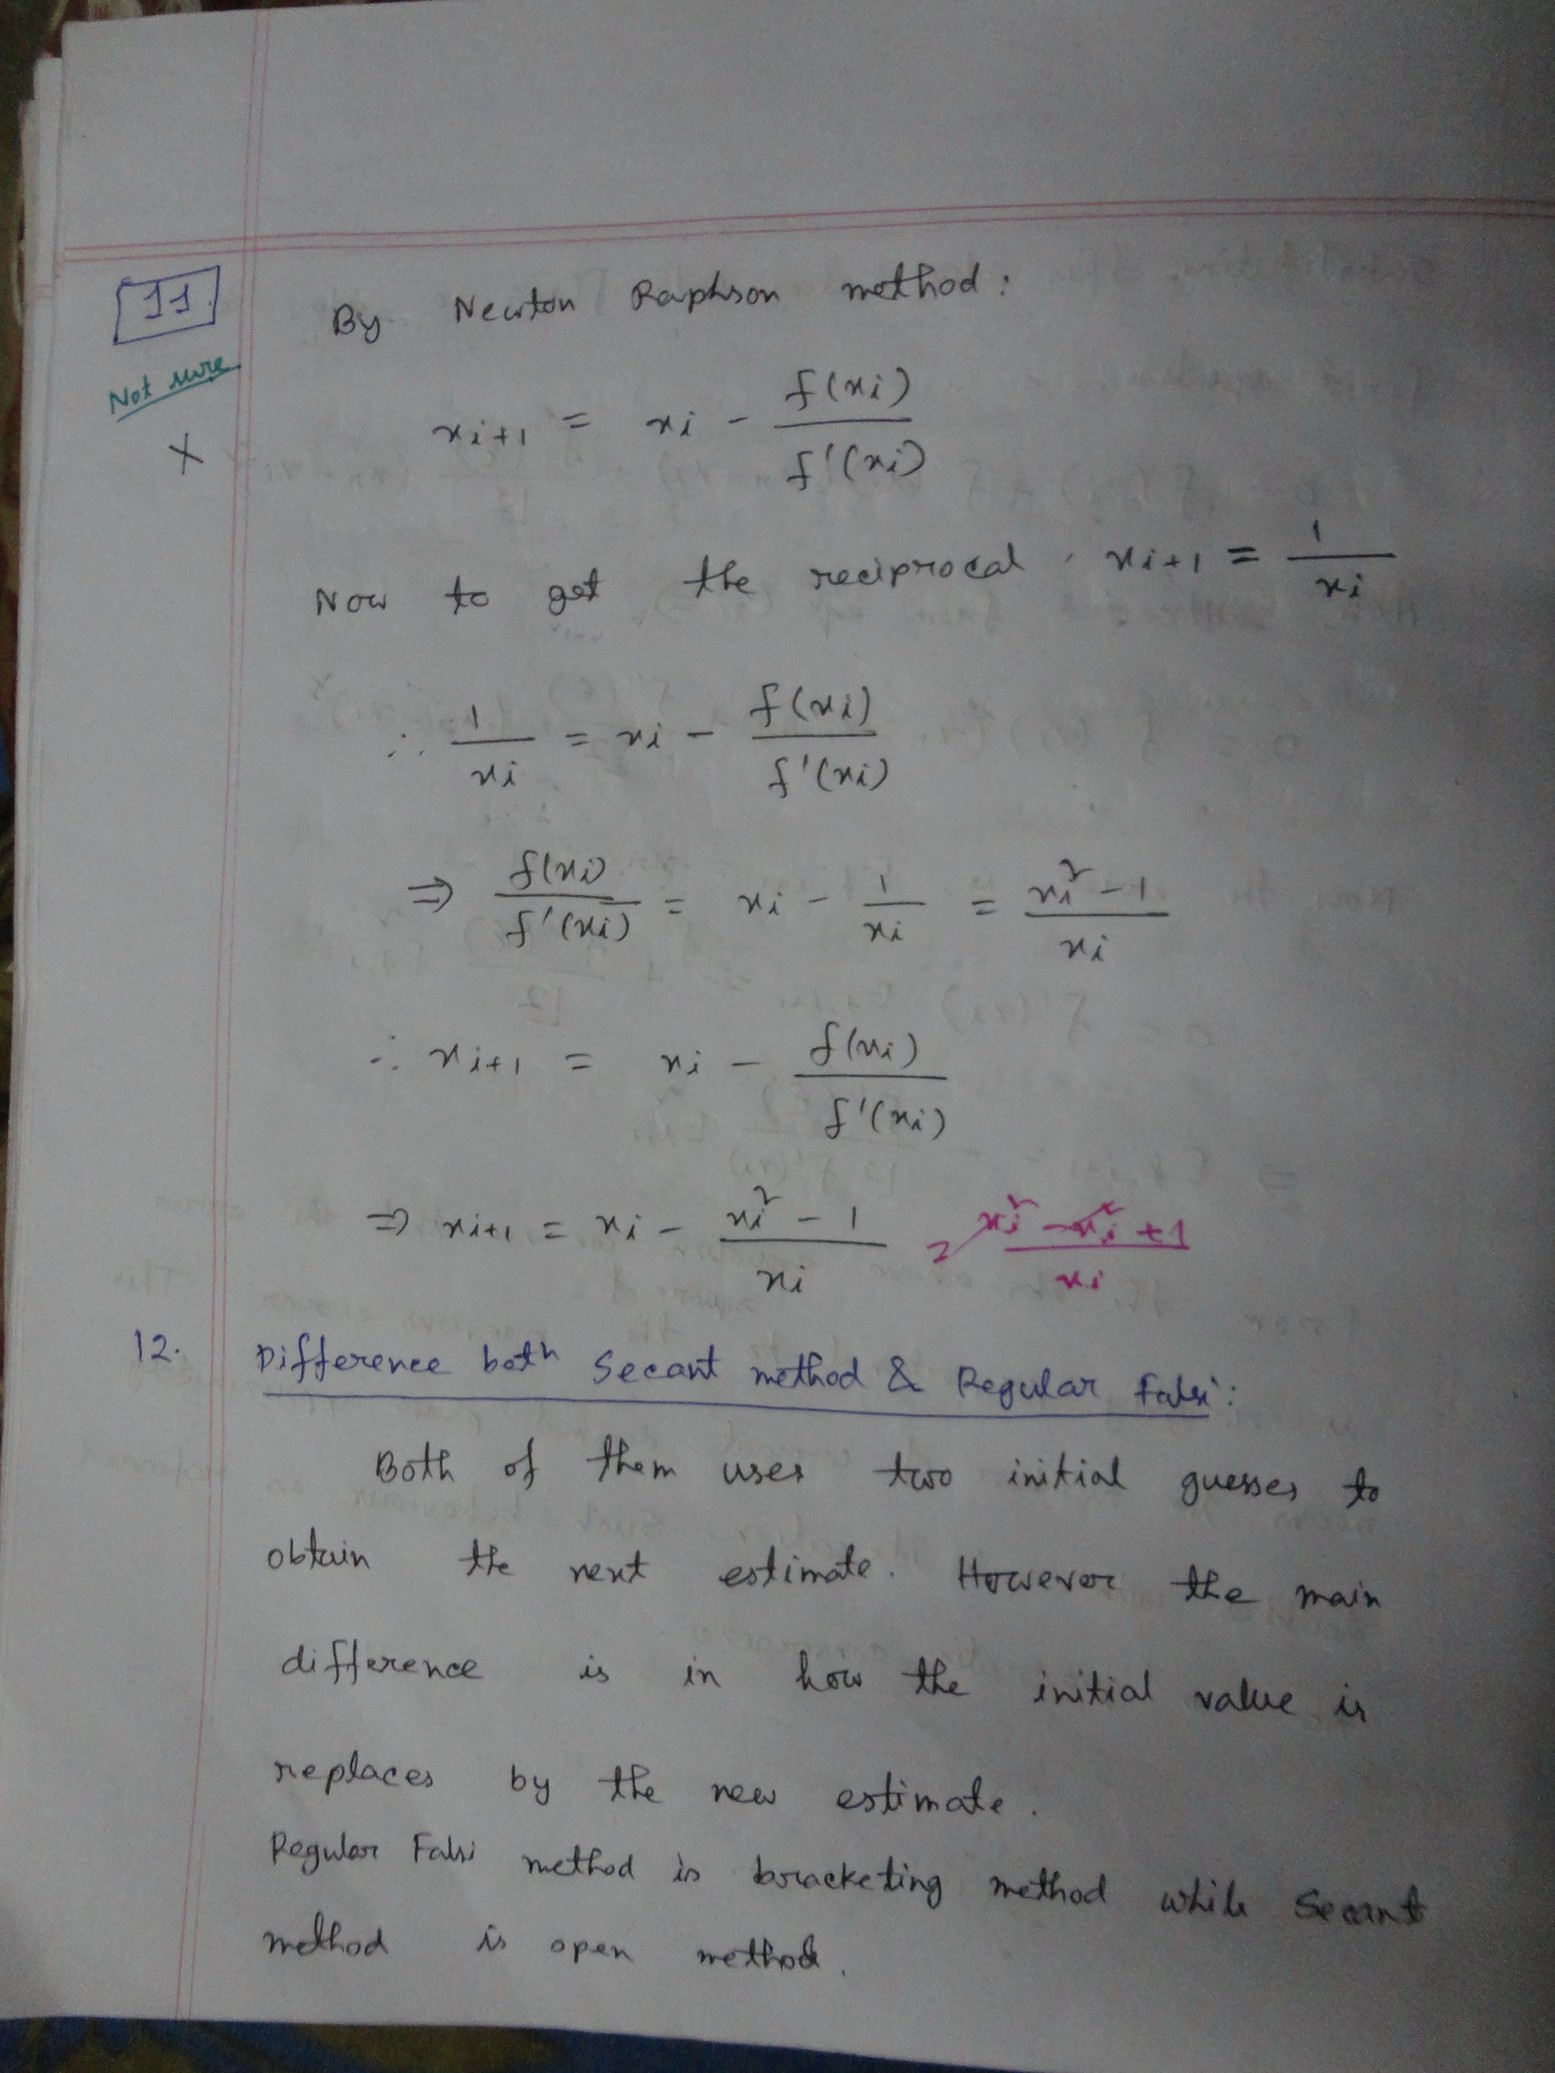 11.
Not sure
X
By Newton Raphson method:
xi+1 = xi - f(xi) / f'(xi)
Now to get the reciprocal, xi+1 = 1 / xi
∴ 1 / xi = xi - f(xi) / f'(xi)
⇒ f(xi) / f'(xi) = xi - 1 / xi = xi² - 1 / xi
∴ xi+1 = xi - f(xi) / f'(xi)
⇒ xi+1 = xi - xi² - 1 / xi = xi² - xi² + 1 / xi
12. Difference betn Secant method & Regular Falsi:
Both of them uses two initial guesses to
obtain the next estimate. However the main
difference is in how the initial value is
replaces by the new estimate.
Regular Falsi method is bracketing method while Secant
method is open method.